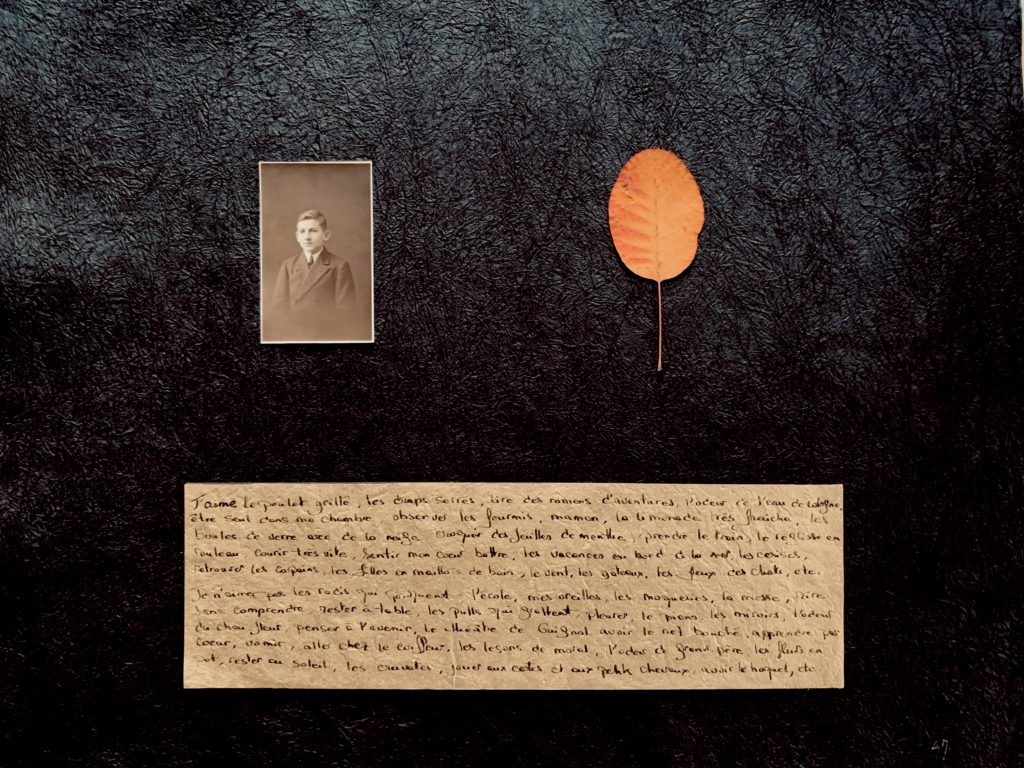 J'aime le poulet grillé, les draps serrés, lire des romans d'aventures, l'odeur de l'eau de cologne,
être seul dans ma chambre observer les fourmis, maman, la limonade très fraîche, les
boules de verre avec de la neige croquer des feuilles de menthe, prendre le train, le réglisse en
rouleau courir très vite, sentir mon coeur battre, les vacances au bord de la mer, les cerises,
retrouver les copains, les filles en maillots de bain, le vent, les gâteaux, les yeux des chats, etc.
Je n'aime pas les radis qui piquent, l'école, mes oreilles, les moqueries, la messe, dire
sans comprendre rester à table, les pulls qui grattent, pleurer, le piano, les miroirs, l'odeur
du chou fleur, penser à l'avenir, le théâtre de Guignol avoir le nez bouché, apprendre par
coeur, vomir, aller chez le coiffeur, les leçons de moral, l'odeur de grand père, les fleurs en
pot, rester au soleil, les cravates, jouer aux et aux petits chevaux, avoir le hoquet, etc